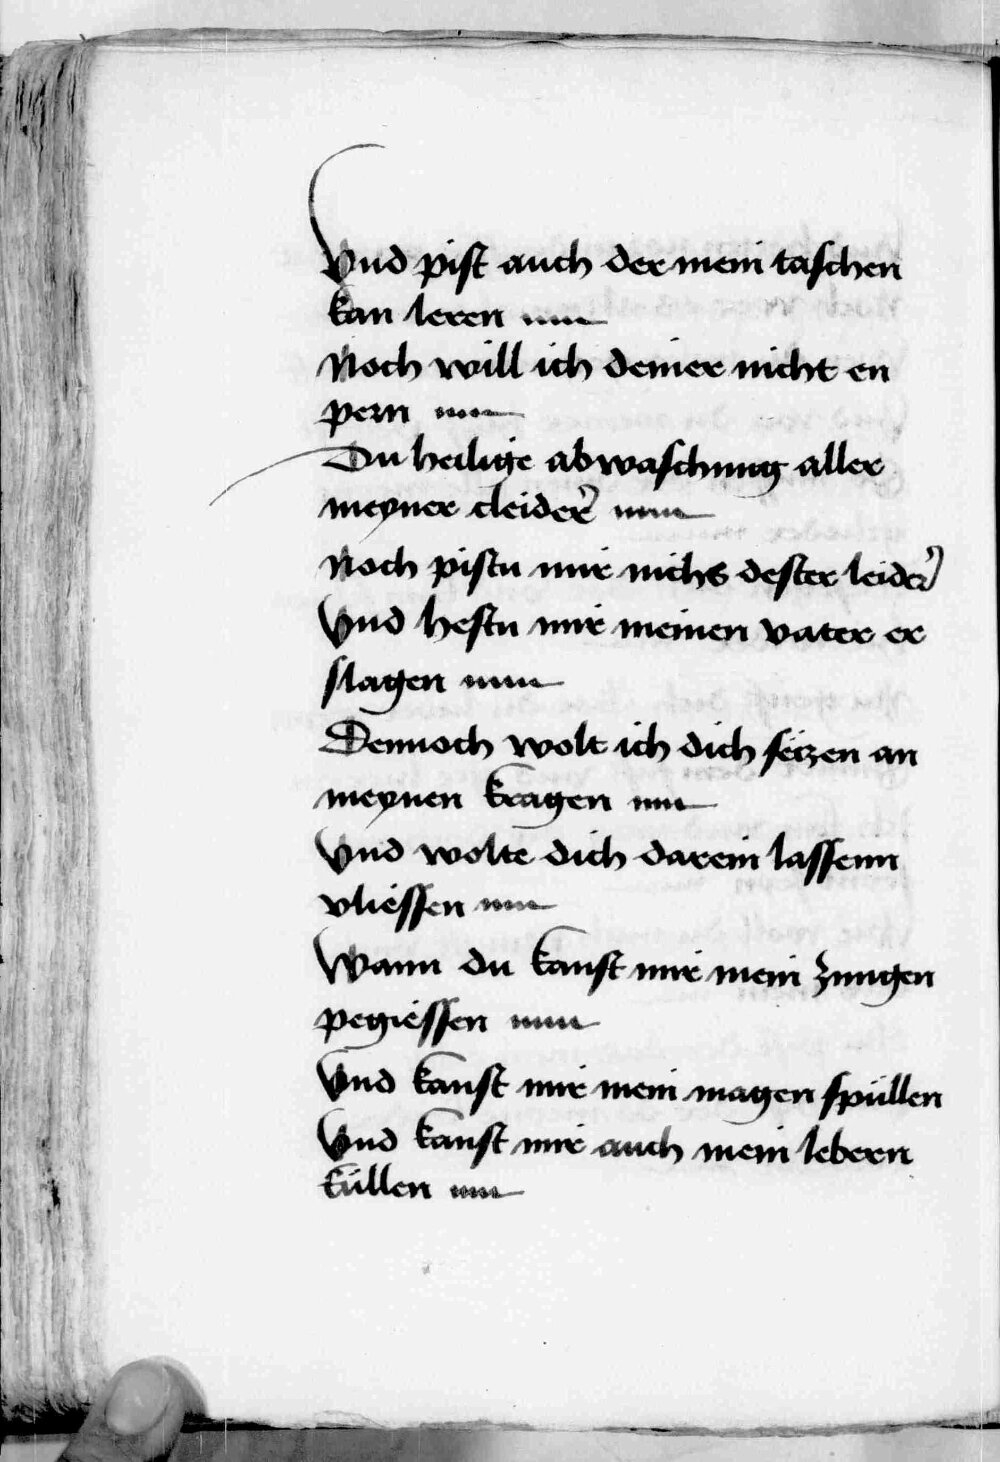 Vnd pist auch der mein taschen
kan leren
Noch will ich deiner nicht en
pern
Du heilige abwaschung aller
meyner cleider
Noch pistu mir nichs dester leider
Vnd hestu mir meinen vater er
slagen
Dennoch wolt ich dich seczen an
meynen kragen
Vnd wolte dich darein lassenn
vliessen
Wann du kanst mir mein zungen
pegiessen
Vnd kanst mir mein magen spüllen
Vnd kanst mir auch mein lebern
küllen